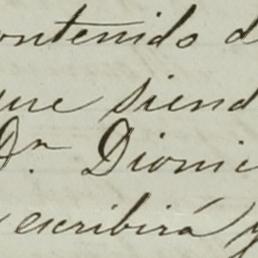 contenido d
que siend
Dn. Dioni
escribirá y